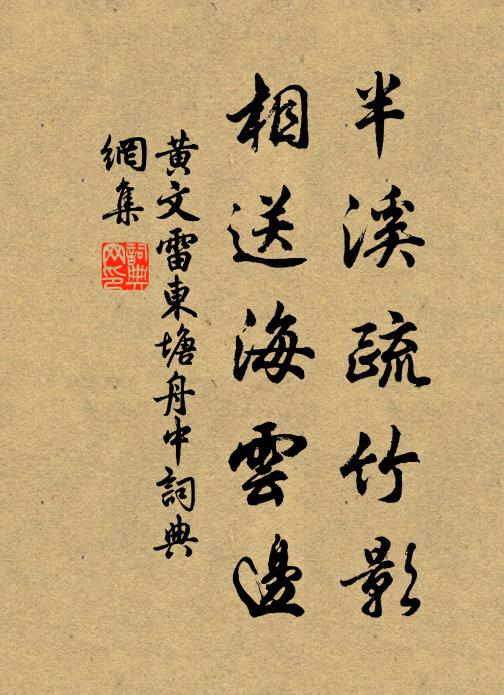 半溪疏竹影
相送海雲邊
黃文雷東塘舟中詞典
網集
詞典
网印